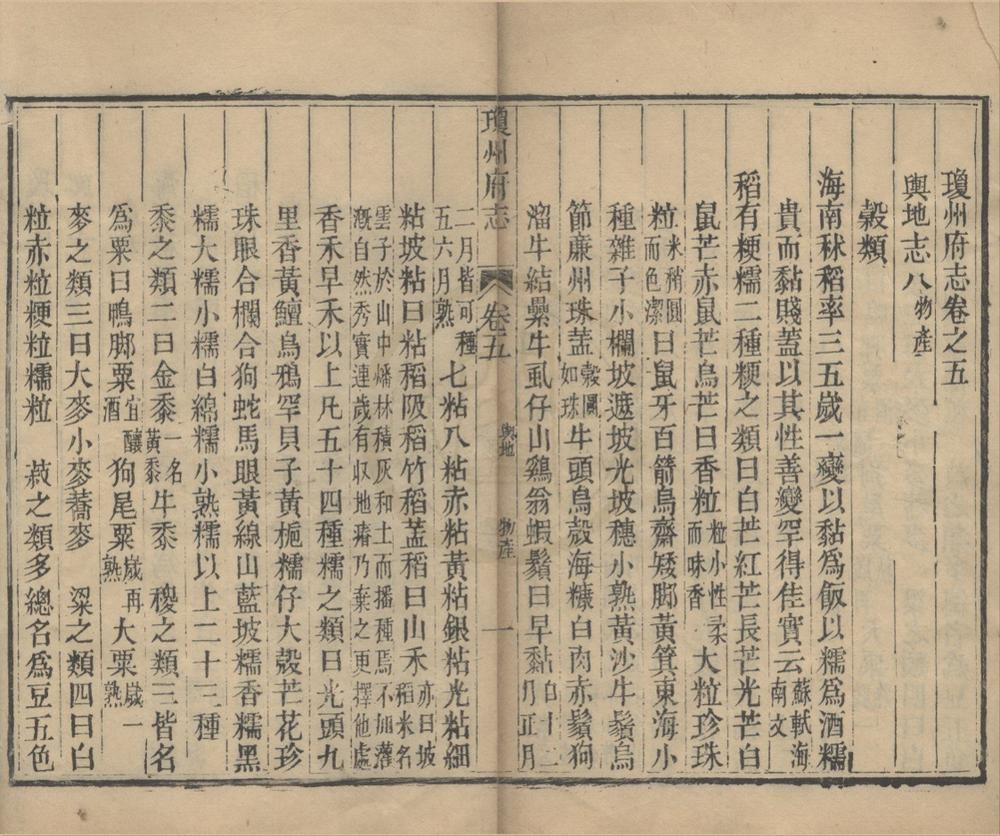 瓊州府志卷之五
輿地志八物產
穀類
海南秫稻率三五歲一變以黏爲飯以糯爲酒糯
貴而黏賤蓋以其性善變罕得佳實云蘇軾海南文
稻有粳糯二種粳之類曰白芒紅芒長芒光芒白
鼠芒赤鼠芒烏芒曰香粒粒小性柔而味香大粒珍珠
粒米稍圓而色潔曰鼠牙百箭烏齊矮脚黃箕東海小
種雜子小欄坡遮坡光坡穗小熟黃沙牛鬚烏
節亷州珠蓋穀圓如珠牛頭烏殼海糠白肉赤鬚狗
溜牛結纍牛虱仔山鷄翁蝦鬚曰早黏自十二月正月
二月皆可種五六月熟七粘八粘赤粘黃粘銀粘光粘細
粘坡粘曰粘稻阪稻竹稻葢稻曰山禾亦曰坡稻米名
雲子於山中燔林積灰和土而播種焉不加灌溉自然秀實連歲有収地瘠乃棄之更擇他處
香禾早禾以上凡五十四種糯之類曰光頭九
里香黃鱣烏鴉罕貝子黃梔糯仔大殼芒花珍
珠眼合欄合狗蛇馬眼黃線山藍坡糯香糯黑
糯大糯小糯白綿糯小熟糯以上二十三種
黍之類二曰金黍一名黃黍牛黍　稷之類三皆名
爲粟曰鴨脚粟宜釀酒狗尾粟歲再熟大粟歲一熟
麥之類三曰大麥小麥蕎麥　粱之類四曰白
粒赤粒粳粒糯粒　菽之類多總名爲豆五色
瓊州府志　卷五　輿地　物產　一